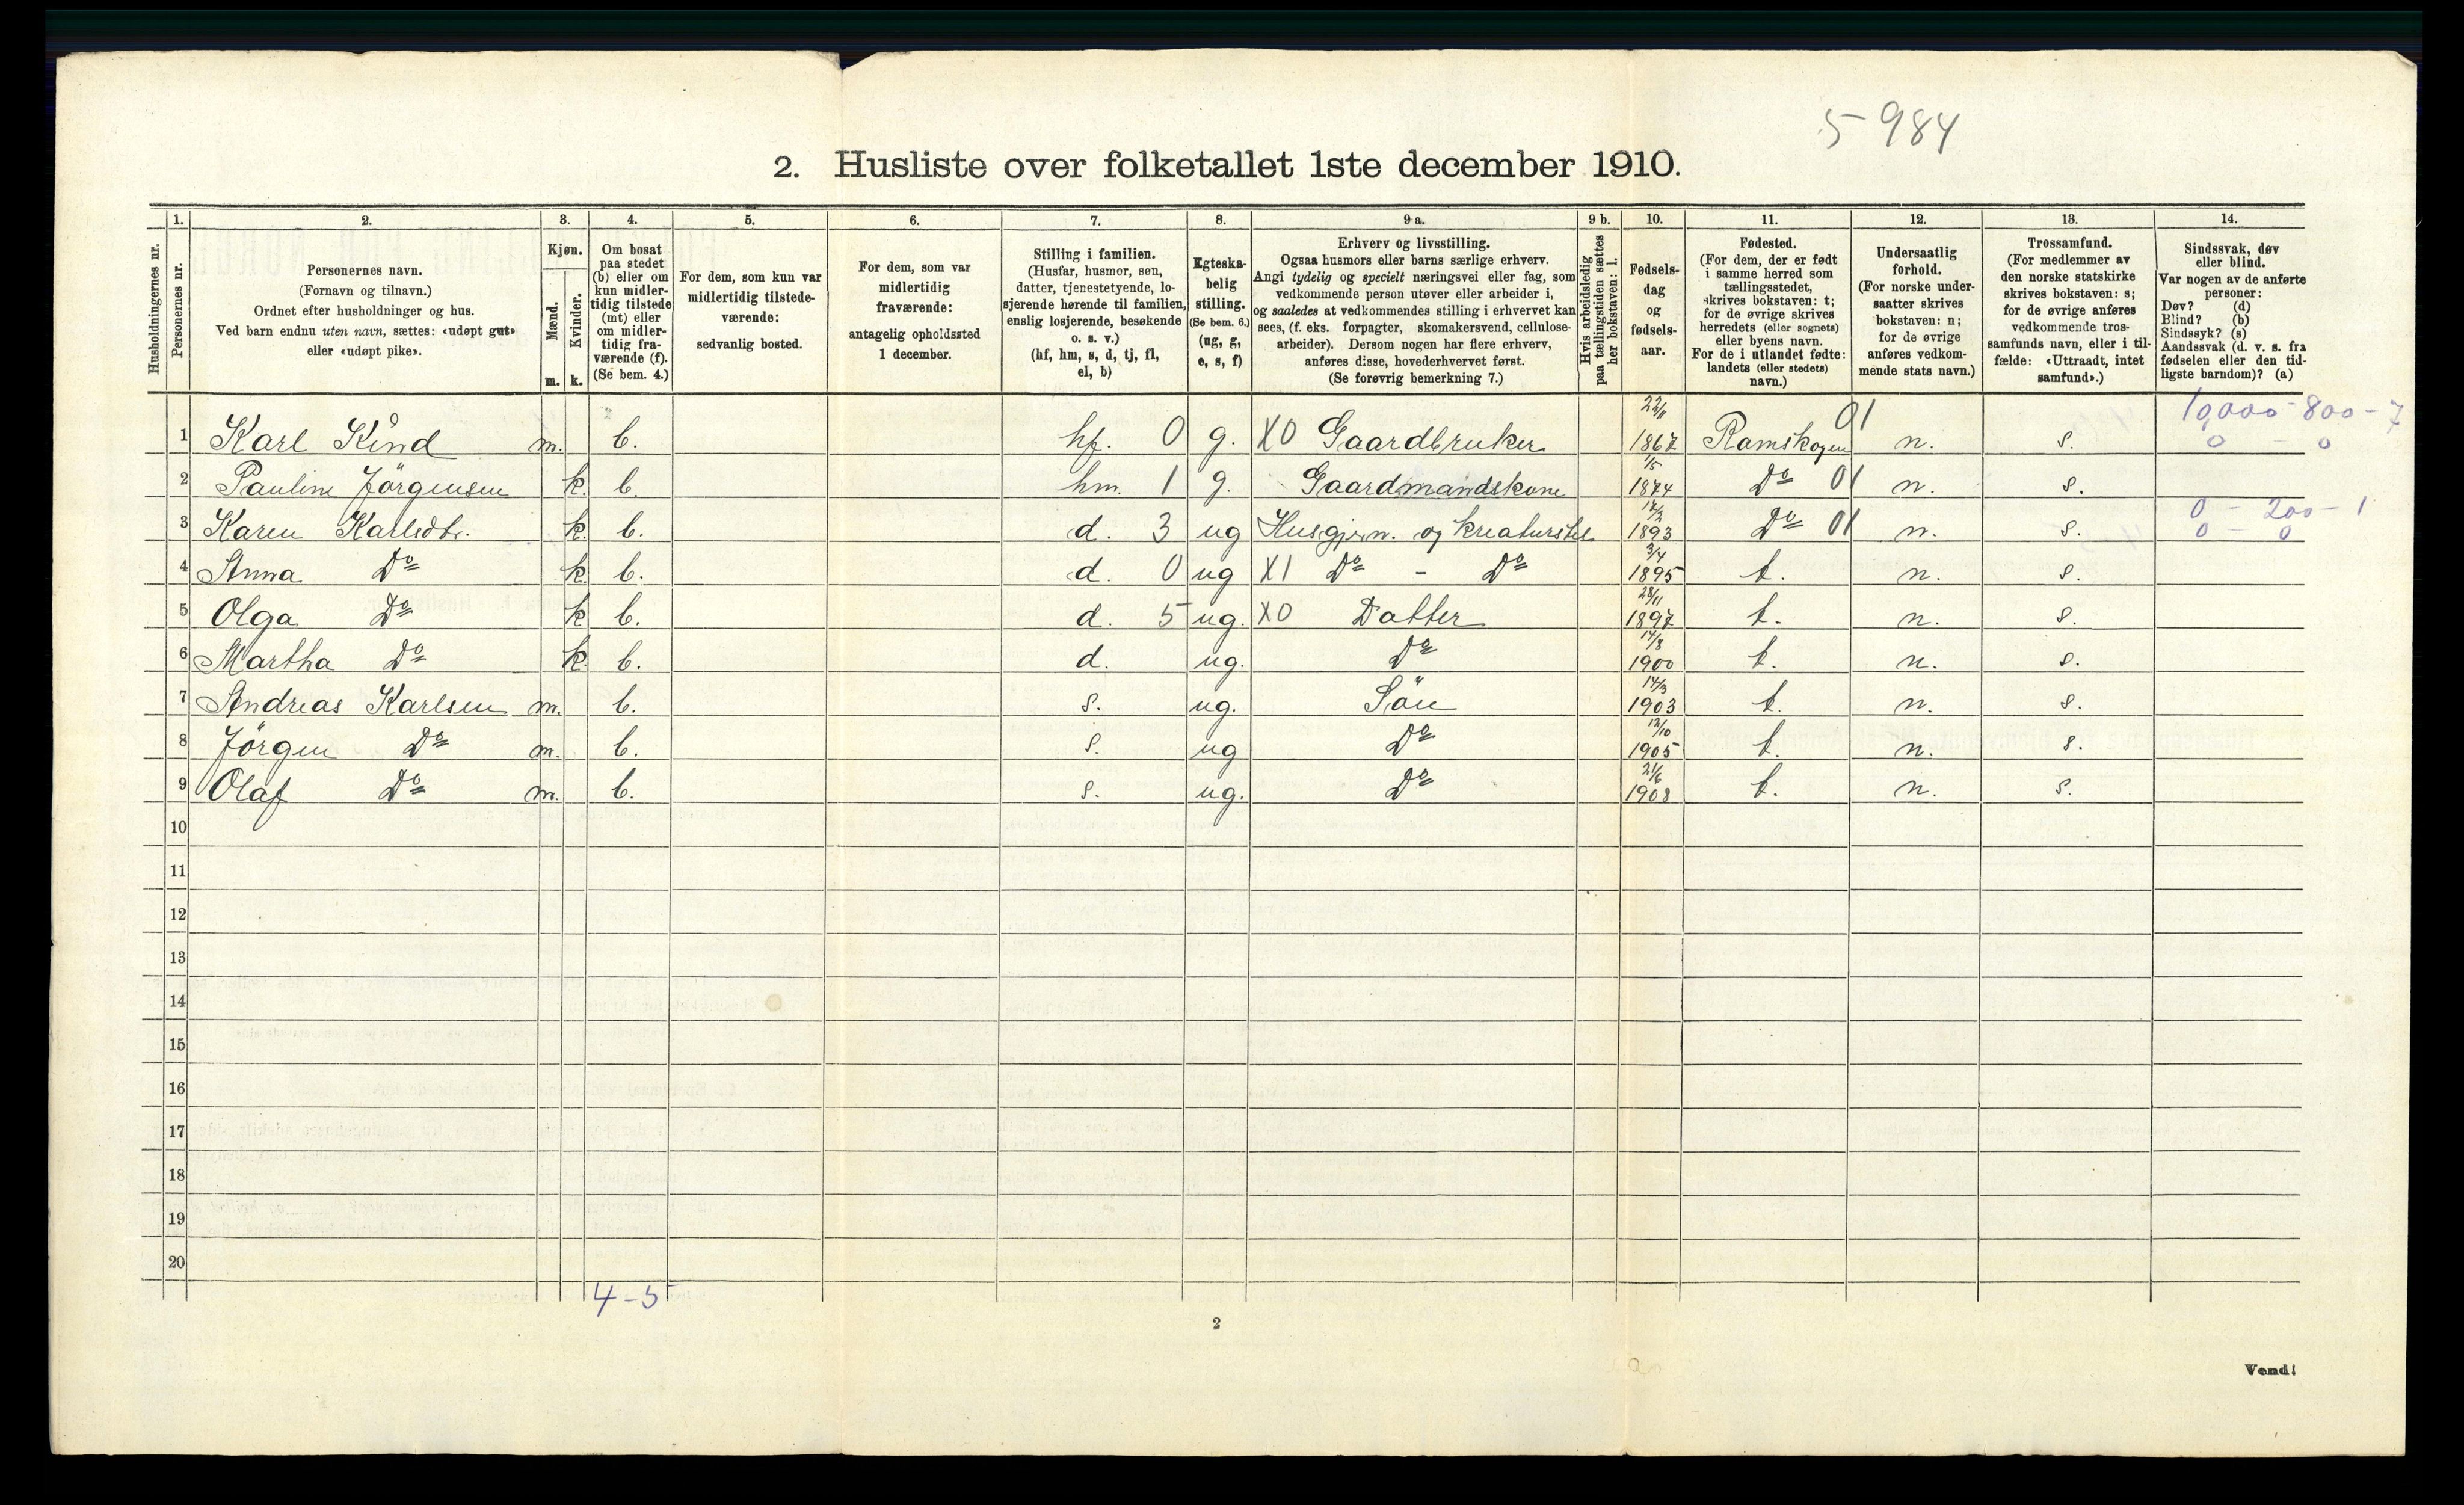 5984
2. Husliste over folketallet 1ste december 1910.
1. 2. 3. 4. 5. 6. 7. 8. 9 a. 9 b. 10. 11. 12. 13. 14.
Husholdningernes nr.
Personernes nr.
Personernes navn.
(Fornavn og tilnavn.)
Ordnet efter husholdninger og hus.
Ved barn endnu uten navn, sættes: «udøpt gut»
eller «udøpt pike».
Kjøn.
Mænd.
Kvinder.
m. k.
Om bosat
paa stedet
(b) eller om
kun midler-
tidig tilstede
(mt) eller
om midler-
tidig fra-
værende (f).
(Se bem. 4.)
For dem, som kun var
midlertidig tilstede-
værende:
sedvanlig bosted.
For dem, som var
midlertidig
fraværende:
antagelig opholdssted
1 december.
Stilling i familien.
(Husfar, husmor, søn,
datter, tjenestetyende, lo-
sjerende hørende til familien,
enslig losjerende, besøkende
o. s. v.)
(hf, hm, s, d, tj, fl,
el, b)
Egteska-
belig
stilling.
(Se bem. 6.)
(ug, g,
e, s, f)
Erhverv og livsstilling.
Ogsaa husmors eller barns særlige erhverv.
Angi tydelig og specielt næringsvei eller fag, som
vedkommende person utøver eller arbeider i,
og saaledes at vedkommendes stilling i erhvervet kan
sees, (f. eks. forpagter, skomakersvend, cellulose-
arbeider). Dersom nogen har flere erhverv,
anføres disse, hovederhvervet først.
(Se forøvrig bemerkning 7.)
Hvis arbeidsledig
paa tællingstiden sættes
her bokstaven: l.
Fødsels-
dag
og
fødsels-
aar.
Fødested.
(For dem, der er født
i samme herred som
tællingsstedet,
skrives bokstaven: t;
for de øvrige skrives
herredets (eller sognets)
eller byens navn.
For de i utlandet fødte:
landets (eller stedets)
navn.)
Undersaatlig
forhold.
(For norske under-
saatter skrives
bokstaven: n;
for de øvrige
anføres vedkom-
mende stats navn.)
Trossamfund.
(For medlemmer av
den norske statskirke
skrives bokstaven: s;
for de øvrige anføres
vedkommende tros-
samfunds navn, eller i til-
fælde: «Uttraadt, intet
samfund».)
Sindssvak, døv
eller blind.
Var nogen av de anførte
personer:
Døv? (d)
Blind? (b)
Sindssyk? (s)
Aandssvak (d. v. s. fra
fødselen eller den tid-
ligste barndom)? (a)
1 Karl Kind m. b. hf. 0 g. X0 Gaardbruker 1867 Ramskogen 01 n. s. 10,000-800-7 0 - 0
2 Pauline Jörgensen k. b. hm. 1 g. Gaardmandskone 1/5 1874 Do 01 n. s.
3 Karen Karlsdtr. k. b. d. 3 ug Husgjern. og kreaturstel 1893 Do 01 n. s. 0 - 200-1 0 - 0
4 Anna Do k. b. d. 0 ug X1 Do - Do 3/4 1895 t. n. s.
5 Olga Do k b. d. 5 ug. X0 Datter 28/11 1897 t. n. s.
6 Martha Do k. b. d. ug. Do 14/8 1900 t. n. s.
7 Andreas Karlsen m. b. s. ug. Sön 14/3 1903 t. n. s.
8 Jörgen Do m. b. s. ug Do 12/10 1905 t. n. s.
9 Olaf Do m. b. s. ug. Do 21/6 1908 t. n. s.
10
11
12
13
14
15
16
17
18
19
20
4-5
2
Vend!